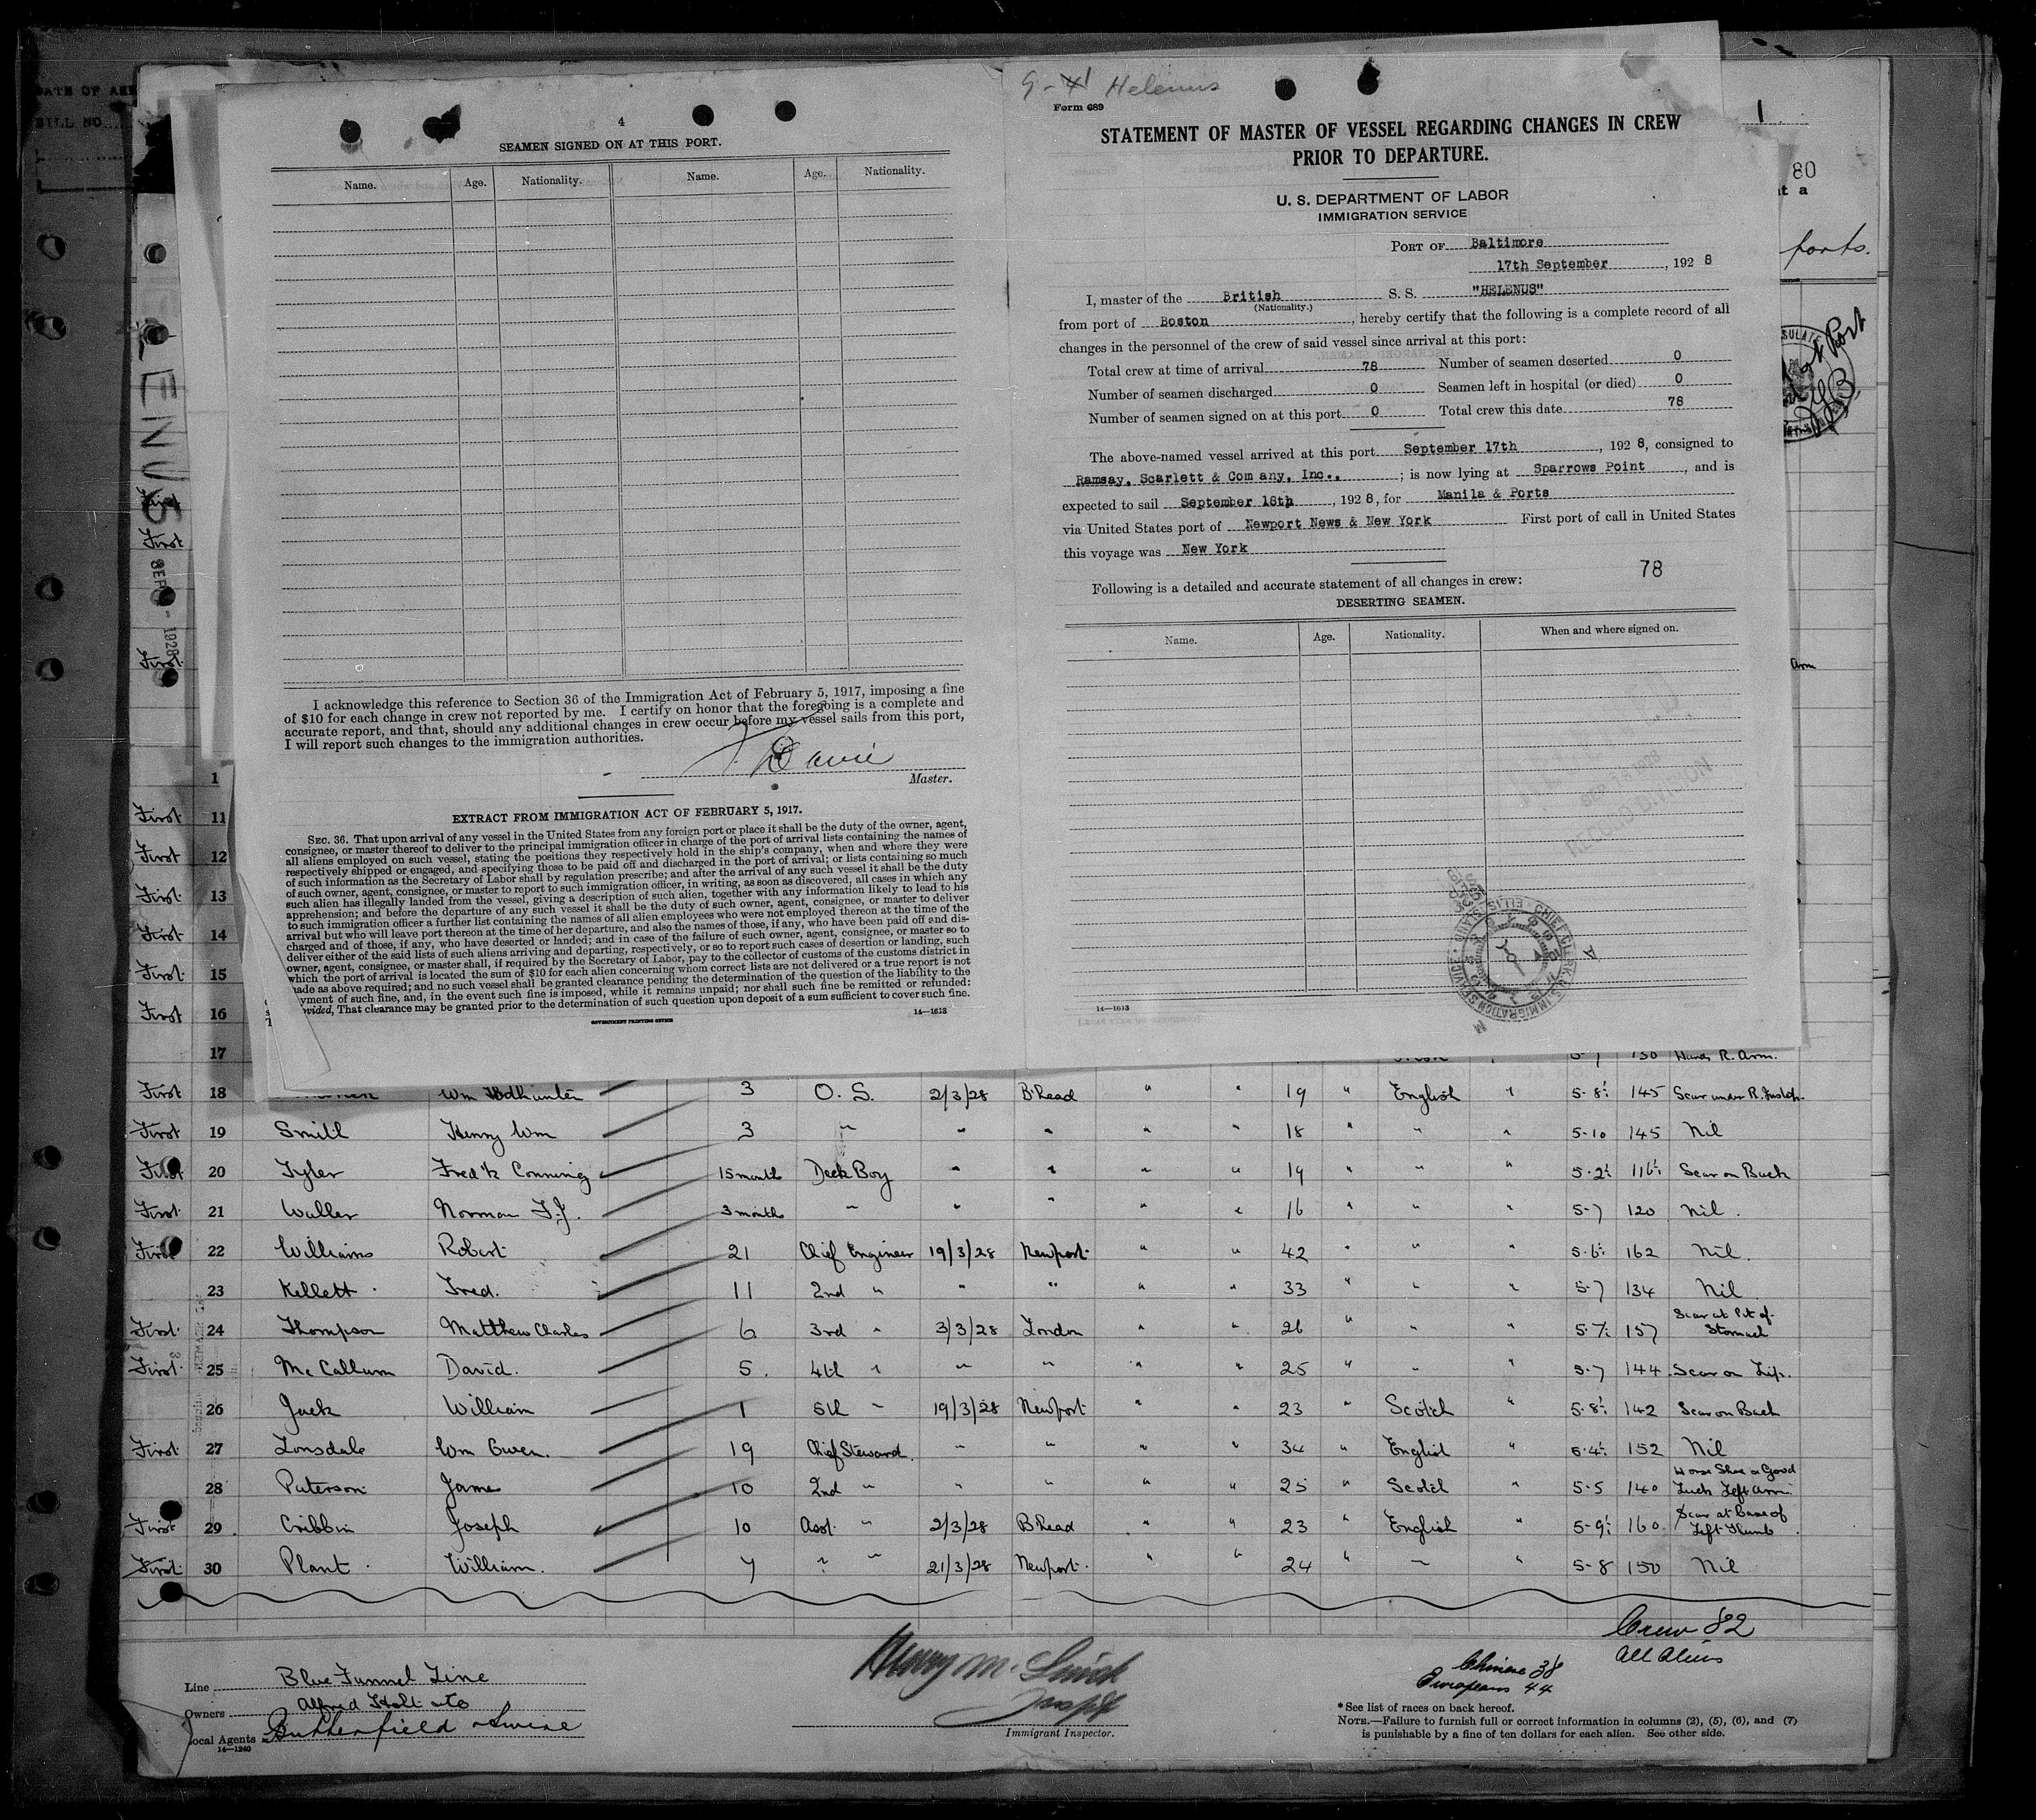 DATE OF
BILL NO.
9-
Helenus
4
SEAMEN SIGNED ON AT THIS PORT.
Name. Age. Nationality. Name. Age. Nationality.
I acknowledge this reference to Section 36 of the Immigration Act of February 5, 1917, imposing a fine
of $10 for each change in crew not reported by me. I certify on honor that the foregoing is a complete and
accurate report, and that, should any additional changes in crew occur before my vessel sails from this port,
I will report such changes to the immigration authorities.
Master.
EXTRACT FROM IMMIGRATION ACT OF FEBRUARY 5, 1917.
SEC. 36. That upon arrival of any vessel in the United States from any foreign port or place it shall be the duty of the owner, agent,
consignee, or master thereof to deliver to the principal immigration officer in charge of the port of arrival lists containing the names of
all aliens employed on such vessel, stating the positions they respectively hold in the ship's company, when and where they were
respectively shipped or engaged, and specifying those to be paid off and discharged in the port of arrival; or lists containing so much
of such information as the Secretary of Labor shall by regulation prescribe; and after the arrival of any such vessel it shall be the duty
of such owner, agent, consignee, or master to report to such immigration officer, in writing, as soon as discovered, all cases in which any
such alien has illegally landed from the vessel, giving a description of such alien, together with any information likely to lead to his
apprehension; and before the departure of any such vessel it shall be the duty of such owner, agent, consignee, or master to deliver
to such immigration officer a further list containing the names of all alien employees who were not employed thereon at the time of the
arrival but who will leave port thereon at the time of her departure, and also the names of those, if any, who have been paid off and dis-
charged and of those, if any, who have deserted or landed; and in case of the failure of such owner, agent, consignee, or master so to
deliver either of the said lists of such aliens arriving and departing, respectively, or so to report such cases of desertion or landing, such
owner, agent, consignee, or master shall, if required by the Secretary of Labor, pay to the collector of customs of the customs district in
which the port of arrival is located the sum of $10 for each alien concerning whom correct lists are not delivered or a true report is not
made as above required; and no such vessel shall be granted clearance pending the determination of the question of the liability to the
yment of such fine, and, in the event such fine is imposed, while it remains unpaid; nor shall such fine be remitted or refunded:
ovided, That clearance may be granted prior to the determination of such question upon deposit of a sum sufficient to cover such fine.
GOVERNMENT PRINTING OFFICE 14—1613
Form 689
STATEMENT OF MASTER OF VESSEL REGARDING CHANGES IN CREW
PRIOR TO DEPARTURE.
U. S. DEPARTMENT OF LABOR
IMMIGRATION SERVICE
PORT OF Baltimore
17th September, 192 8
I, master of the British S. S. "HELENUS"
(Nationality.)
from port of Boston, hereby certify that the following is a complete record of all
changes in the personnel of the crew of said vessel since arrival at this port:
Total crew at time of arrival 78 Number of seamen deserted 0
Number of seamen discharged 0 Seamen left in hospital (or died) 0
Number of seamen signed on at this port 0 Total crew this date 78
The above-named vessel arrived at this port September 17th, 192 8, consigned to
Ramsay, Scarlett & Com any, Inc., ; is now lying at Sparrows Point, and is
expected to sail September 18th, 192 8, for Manila & Ports
via United States port of Newport News & New York First port of call in United States
this voyage was New York
78
Following is a detailed and accurate statement of all changes in crew:
DESERTING SEAMEN.
Name. Age. Nationality. When and where signed on.
14—1613
1
80
t a
ports.
Arm
ENUS
SEP 1928
First
First
First
1
First 11
First 12
First 13
First 14
First 15
First 16
17 5-7 130 R. Arm.
First 18 Wm 3 O. S. 2/3/28 B'head " " 19 " English " 5-8½ 145 Scar under R.
First 19 Smith Henry Wm 3 " " " " " 18 " " " 5-10 145 Nil
First 20 Tyler Fred'k Conning 15 months Deck Boy " " " " 19 " " " 5-2½ 116½ Scar on Back
First 21 Waller Norman 3 months " " " " " 16 " " " 5-7 120 Nil.
First 22 Williams Robert 21 Chief Engineer 19/3/28 Newport " " 42 " " " 5-6½ 162 Nil.
23 Kellett Fred. 11 2nd " " " " " 33 " " " 5-7 134 Nil
First 24 Thompson Matthew Charles 6 3rd " 3/3/28 London " " 26 " " " 5-7½ 157 Scar at Pit of Stomach
First 25 McCallum David. 5 4th " " " " " 25 " " " 5-7 144 Scar on Lip.
26 Jack William 1 5th " 19/3/28 Newport " " 23 " Scotch " 5-8½ 142 Scar on Back
First 27 Lonsdale Wm Owen. 19 Chief Steward. " " " " 34 " English " 5-4½ 152 Nil
28 Paterson James 10 2nd " " " " " 25 " Scotch " 5-5 140 Horse Shoe & Good Luck Left Arm
First 29 Cribbin Joseph 10 Asst. " 2/3/28 B'head " " 23 " English " 5-9½ 160 Scar at Base of Left Thumb
First 30 Plant William. 7 " " 21/3/28 Newport. " " 24 " " " 5-8 150 Nil
Crew 82
All Aliens
Chinese 38
Europeans 44
Line Blue Funnel Line
Owners Alfred Holt & Co
Local Agents Butterfield & Swire
14—1240
Immigrant Inspector.
*See list of races on back hereof.
NOTE.—Failure to furnish full or correct information in columns (2), (5), (6), and (7)
is punishable by a fine of ten dollars for each alien. See other side.